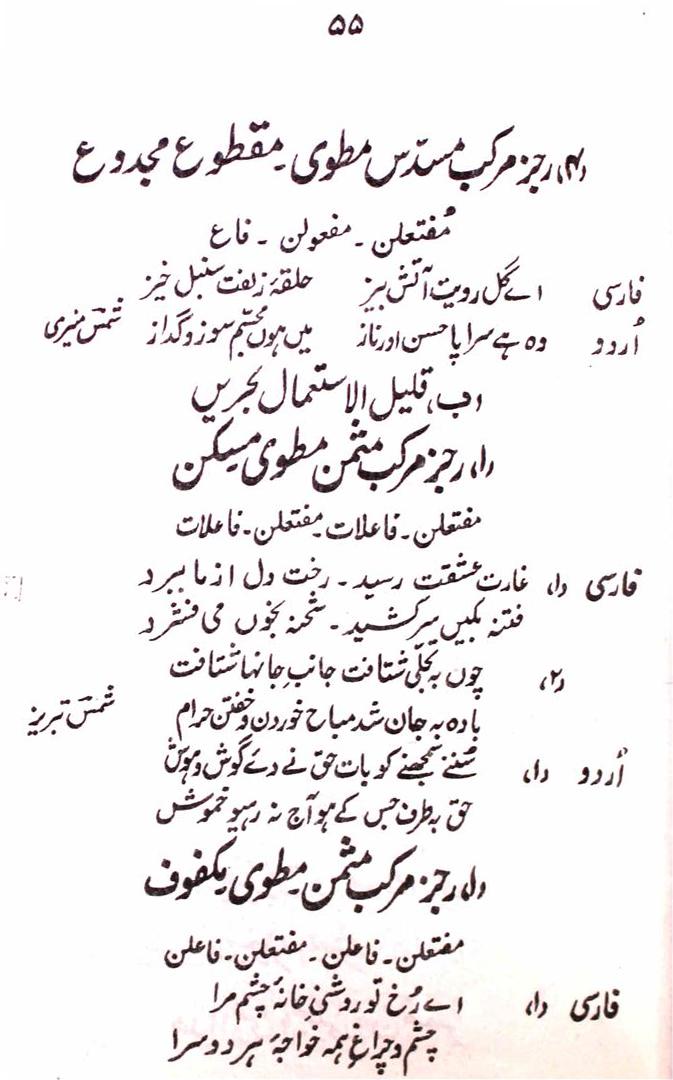 ۵۵
(۴) رجز مرکب مسدّس مطوی۔ مقطوع مجدوع
مُفتعلن۔ مفعولن۔ فاع
فارسی اے گل رویت آتش بیز حلقۂ زلفت سنبل خیز
اُردو وہ ہے سراپا حسن اور ناز میں ہوں مجسّم سوز و گداز شمسؔ منیری
(ب) قلیل الاستعمال بحریں
(۱) رجز مرکب مثمن مطوی مسکن
مفتعلن۔ فاعلات۔ مفتعلن۔ فاعلات
فارسی (۱) غارت عشقت رسید۔ رخت دل از ما ببرد
فتنہ بکیں سر کشید۔ شحنہ بخوں می فشرد
(۲) چوں بہ تجلّی شتافت جانبِ جانہا شتافت
بادہ بہ جان شد مباح خوردن و خفتن حرام شمسؔ تبریز
اُردو (۱) سُننے سمجھنے کو بات حق نے دئے گوش و ہوش
حق بہ طرف جس کے ہو آج نہ رہیو خموش
(۱) رجز مرکب مثمن۔ مطوی۔ مکفوف
مفتعلن۔ فاعلن۔ مفتعلن۔ فاعلن
فارسی (۱) اے رُخ تو روشنیِ خانۂ چشم مرا
چشم و چراغ ہمہ خواجۂ ہر دو سرا